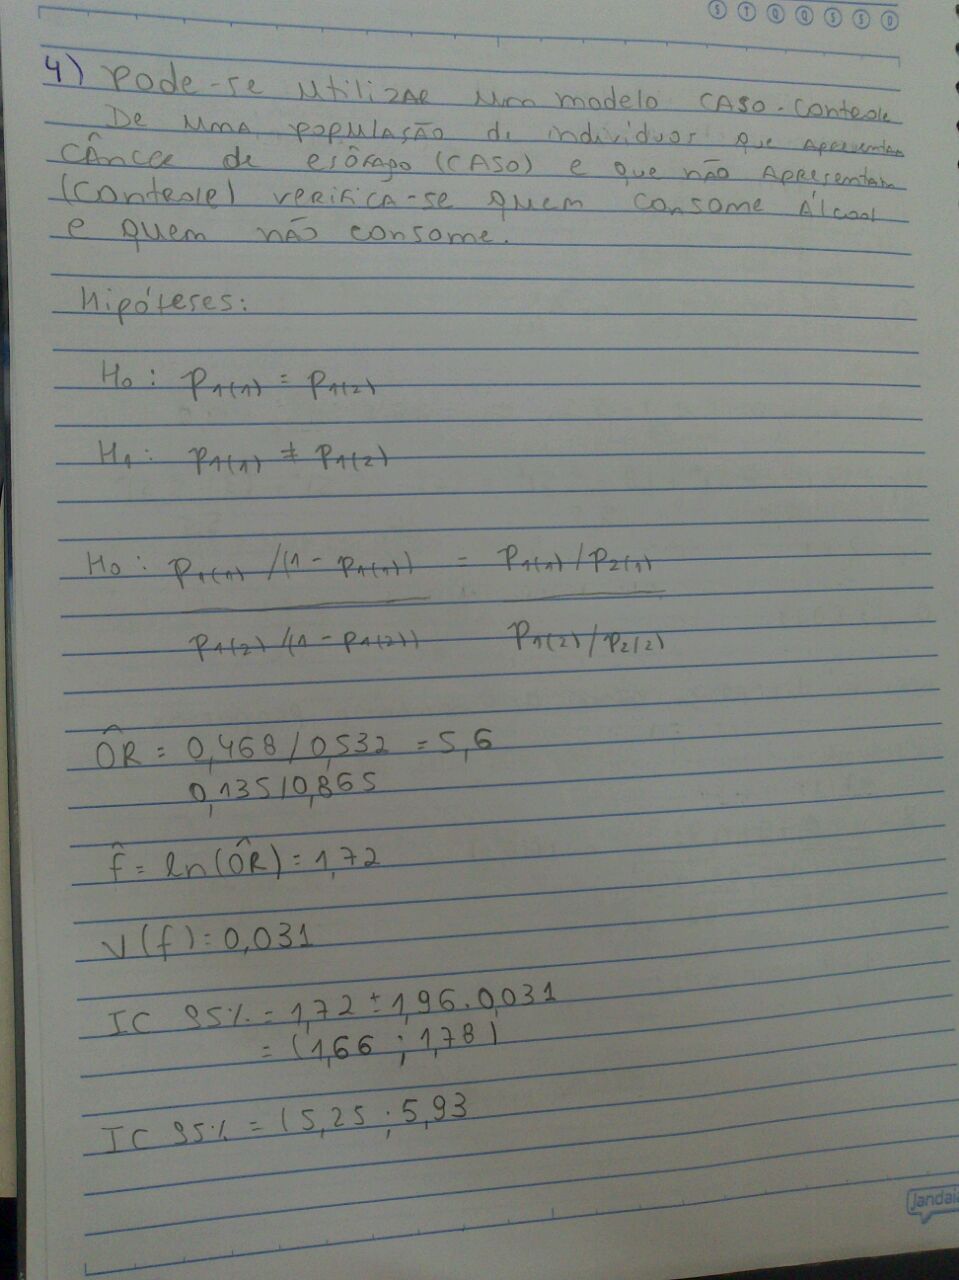 S T Q Q S S D
4) Pode-se utilizar um modelo caso-controle
De uma população de indivíduos que apresentam
câncer de esôfago (caso) e que não apresentam
(controle) verifica-se quem consome Álcool
e quem não consome.
Hipóteses:
H₀ : P₁₍₁₎ = P₁₍₂₎
H₁ : P₁₍₁₎ ≠ P₁₍₂₎
H₀ : P₁₍₁₎ /(1 - P₁₍₁₎) = P₁₍₁₎ / P₂₍₁₎
P₁₍₂₎ /(1 - P₁₍₂₎) P₁₍₂₎ / P₂₍₂₎
ÔR = 0,468 / 0,532 = 5,6
0,135 / 0,865
f̂ = ln(ÔR) = 1,72
V(f) = 0,031
IC 95% = 1,72 ± 1,96 . 0,031
= (1,66 ; 1,78)
IC 95% = (5,25 ; 5,93
Jandaia